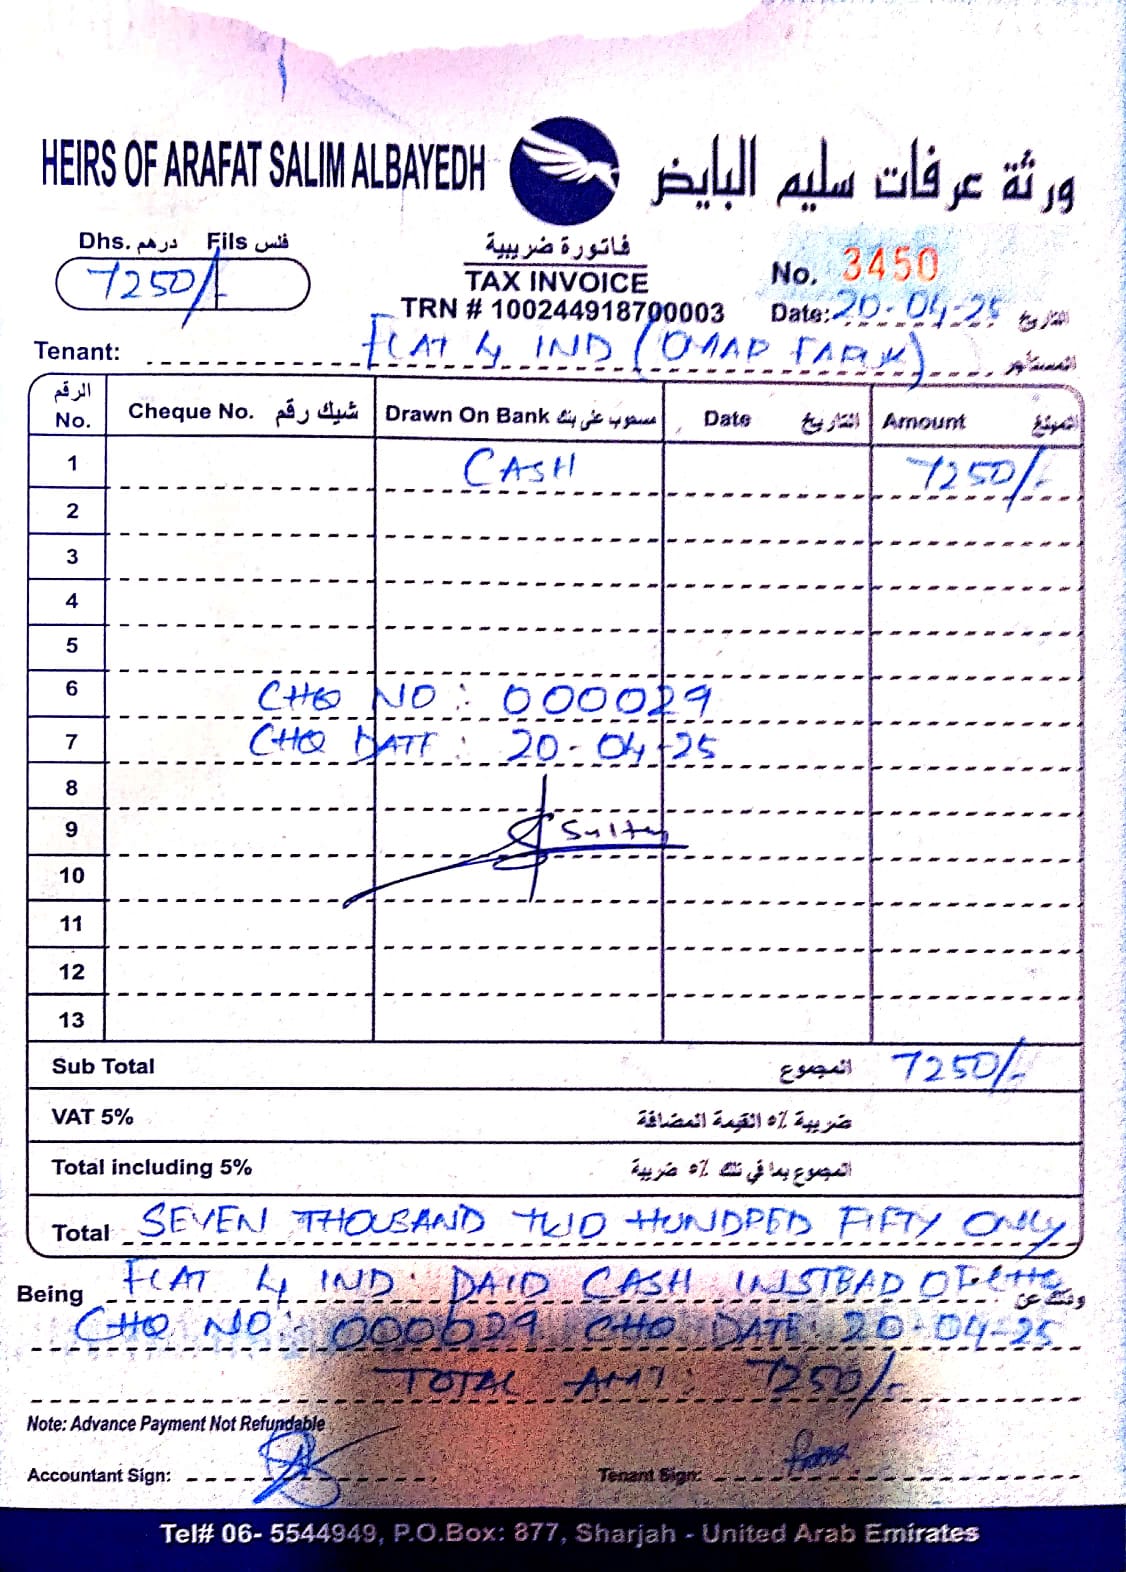 HEIRS OF ARAFAT SALIM ALBAYEDH
ورثة عرفات سليم البايض
Dhs. درهم Fils فلس
7250/-
فاتورة ضريبية
TAX INVOICE
TRN # 100244918700003
No. 3450
Date: 20-04-25 التاريخ
Tenant: FLAT 4 IND (OMAR FARUK) المستأجر
الرقم No. Cheque No. شيك رقم Drawn On Bank مسحوب على بنك Date التاريخ Amount المبلغ
1 CASH 7250/-
2
3
4
5
6 CHQ NO : 000029
7 CHQ DATE : 20-04-25
8
9
10
11
12
13
Sub Total المجموع 7250/-
VAT 5% ضريبة ٥٪ القيمة المضافة
Total including 5% المجموع بما في ذلك ٥٪ ضريبة
Total SEVEN THOUSAND TWO HUNDRED FIFTY ONLY
Being FLAT 4 IND. PAID CASH INSTEAD OF وذلك عن
CHQ NO: 000029 CHQ DATE: 20-04-25
TOTAL AMT: 7250/-
Note: Advance Payment Not Refundable
Accountant Sign: Tenant Sign:
Tel# 06- 5544949, P.O.Box: 877, Sharjah - United Arab Emirates